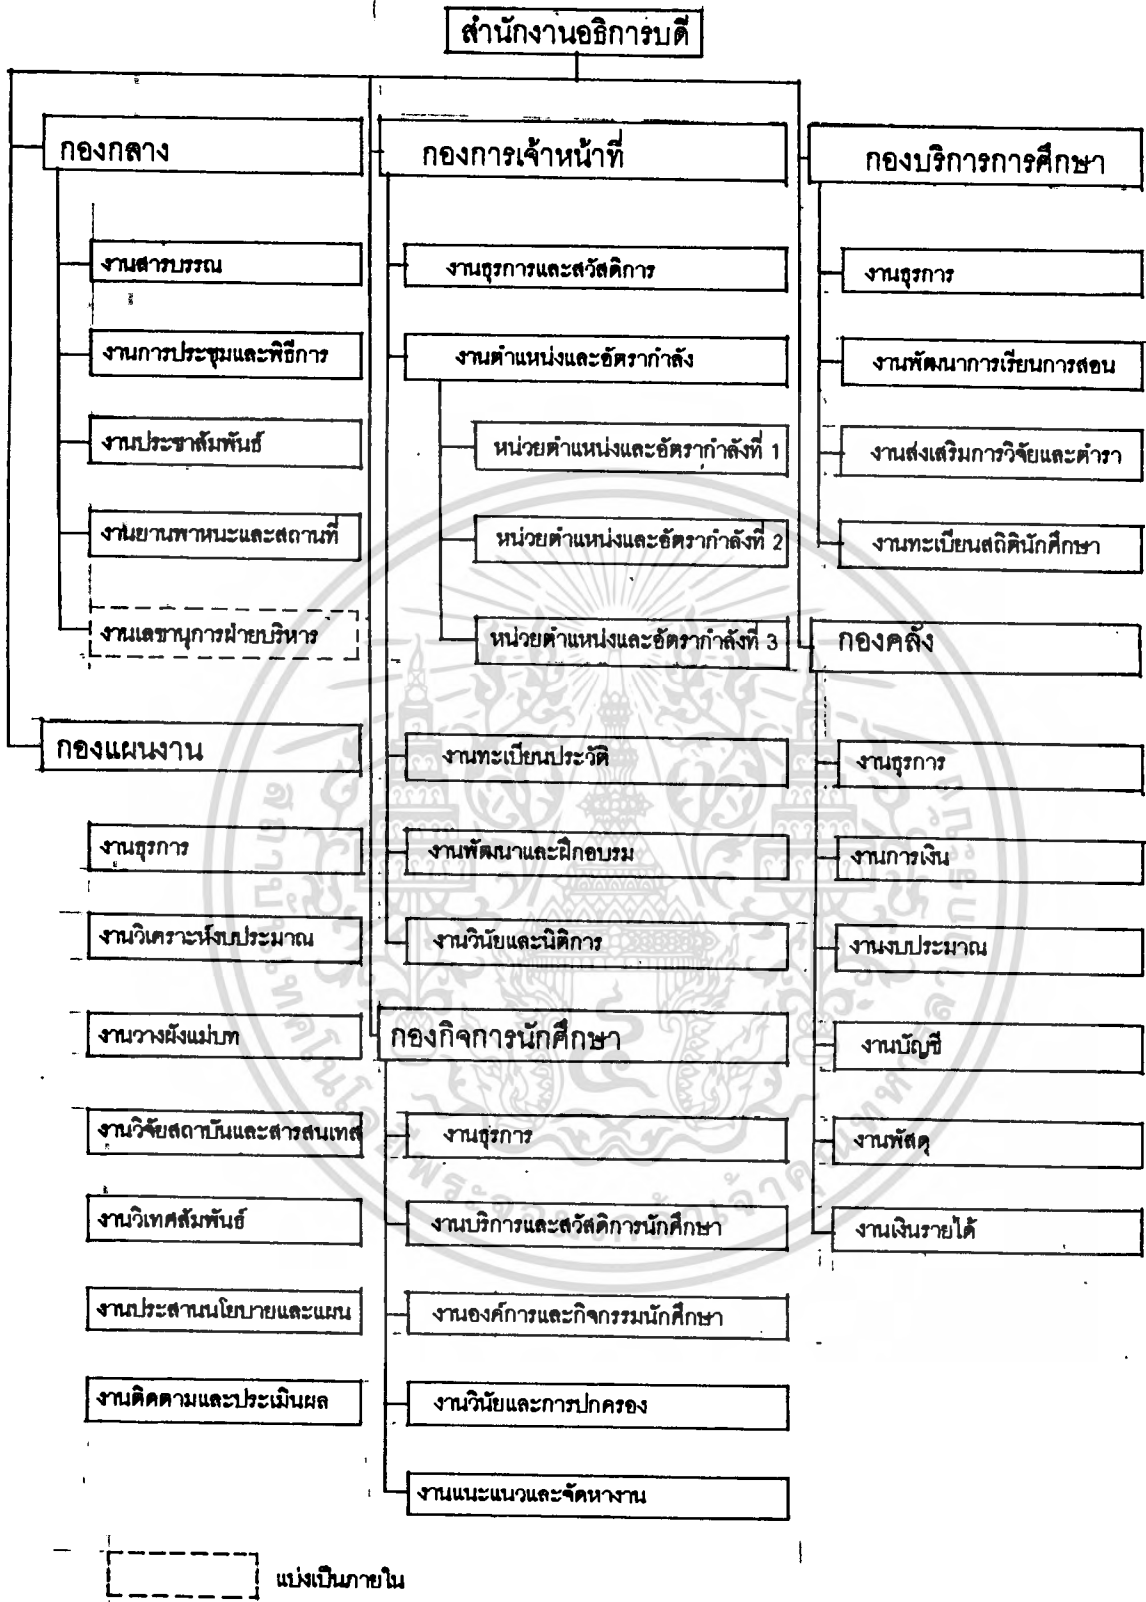 สำนักงานอธิการบดี
กองกลาง
งานสารบรรณ
งานการประชุมและพิธีการ
งานประชาสัมพันธ์
งานยานพาหนะและสถานที่
งานเลขานุการฝ่ายบริหาร
กองแผนงาน
งานธุรการ
งานวิเคราะห์งบประมาณ
งานวางผังแม่บท
งานวิจัยสถาบันและสารสนเทศ
งานวิเทศสัมพันธ์
งานประสานนโยบายและแผน
งานติดตามและประเมินผล
กองการเจ้าหน้าที่
งานธุรการและสวัสดิการ
งานตำแหน่งและอัตรากำลัง
หน่วยตำแหน่งและอัตรากำลังที่ 1
หน่วยตำแหน่งและอัตรากำลังที่ 2
หน่วยตำแหน่งและอัตรากำลังที่ 3
งานทะเบียนประวัติ
งานพัฒนาและฝึกอบรม
งานวินัยและนิติการ
กองกิจการนักศึกษา
งานธุรการ
งานบริการและสวัสดิการนักศึกษา
งานองค์การและกิจกรรมนักศึกษา
งานวินัยและการปกครอง
งานแนะแนวและจัดหางาน
กองบริการการศึกษา
งานธุรการ
งานพัฒนาการเรียนการสอน
งานส่งเสริมการวิจัยและตำรา
งานทะเบียนสถิตินักศึกษา
กองคลัง
งานธุรการ
งานการเงิน
งานงบประมาณ
งานบัญชี
งานพัสดุ
งานเงินรายได้
แบ่งเป็นภายใน
สถาบันเทคโนโลยีพระจอมเกล้าเจ้าคุณทหารลาดกระบัง